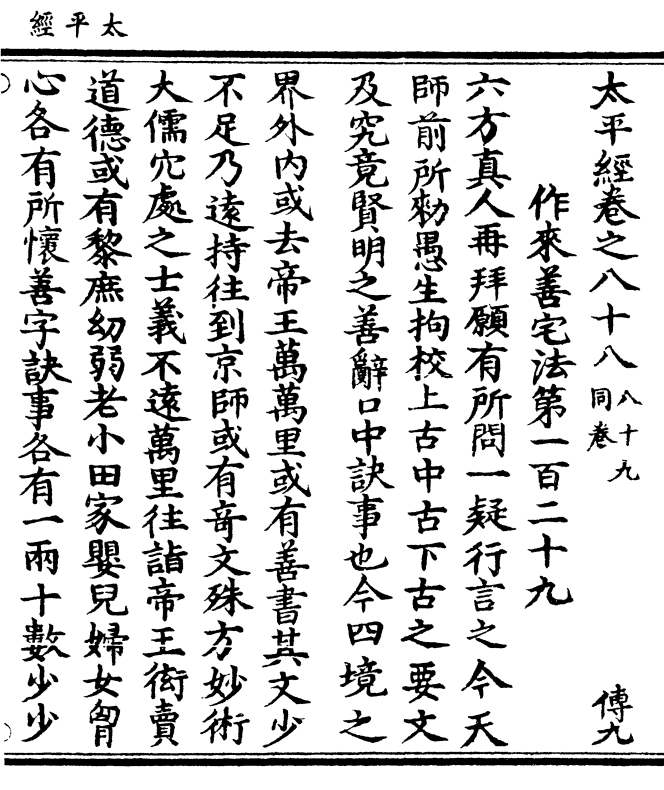 太平經
太平經卷之八十八 八十九同卷 傅九
作來善宅法第一百二十九
六方真人再拜願有所問一疑行言之今天
師前所勑愚生拘校上古中古下古之要文
及究竟賢明之善辭口中訣事也今四境之
界外內或去帝王萬萬里或有善書其文少
不足乃遠持往到京師或有竒文殊方妙術
大儒穴處之士義不遠萬里往詣帝王衒賣
道德或有黎庶幼弱老小田家嬰兒婦女胷
心各有所懷善字訣事各有一兩十數少少